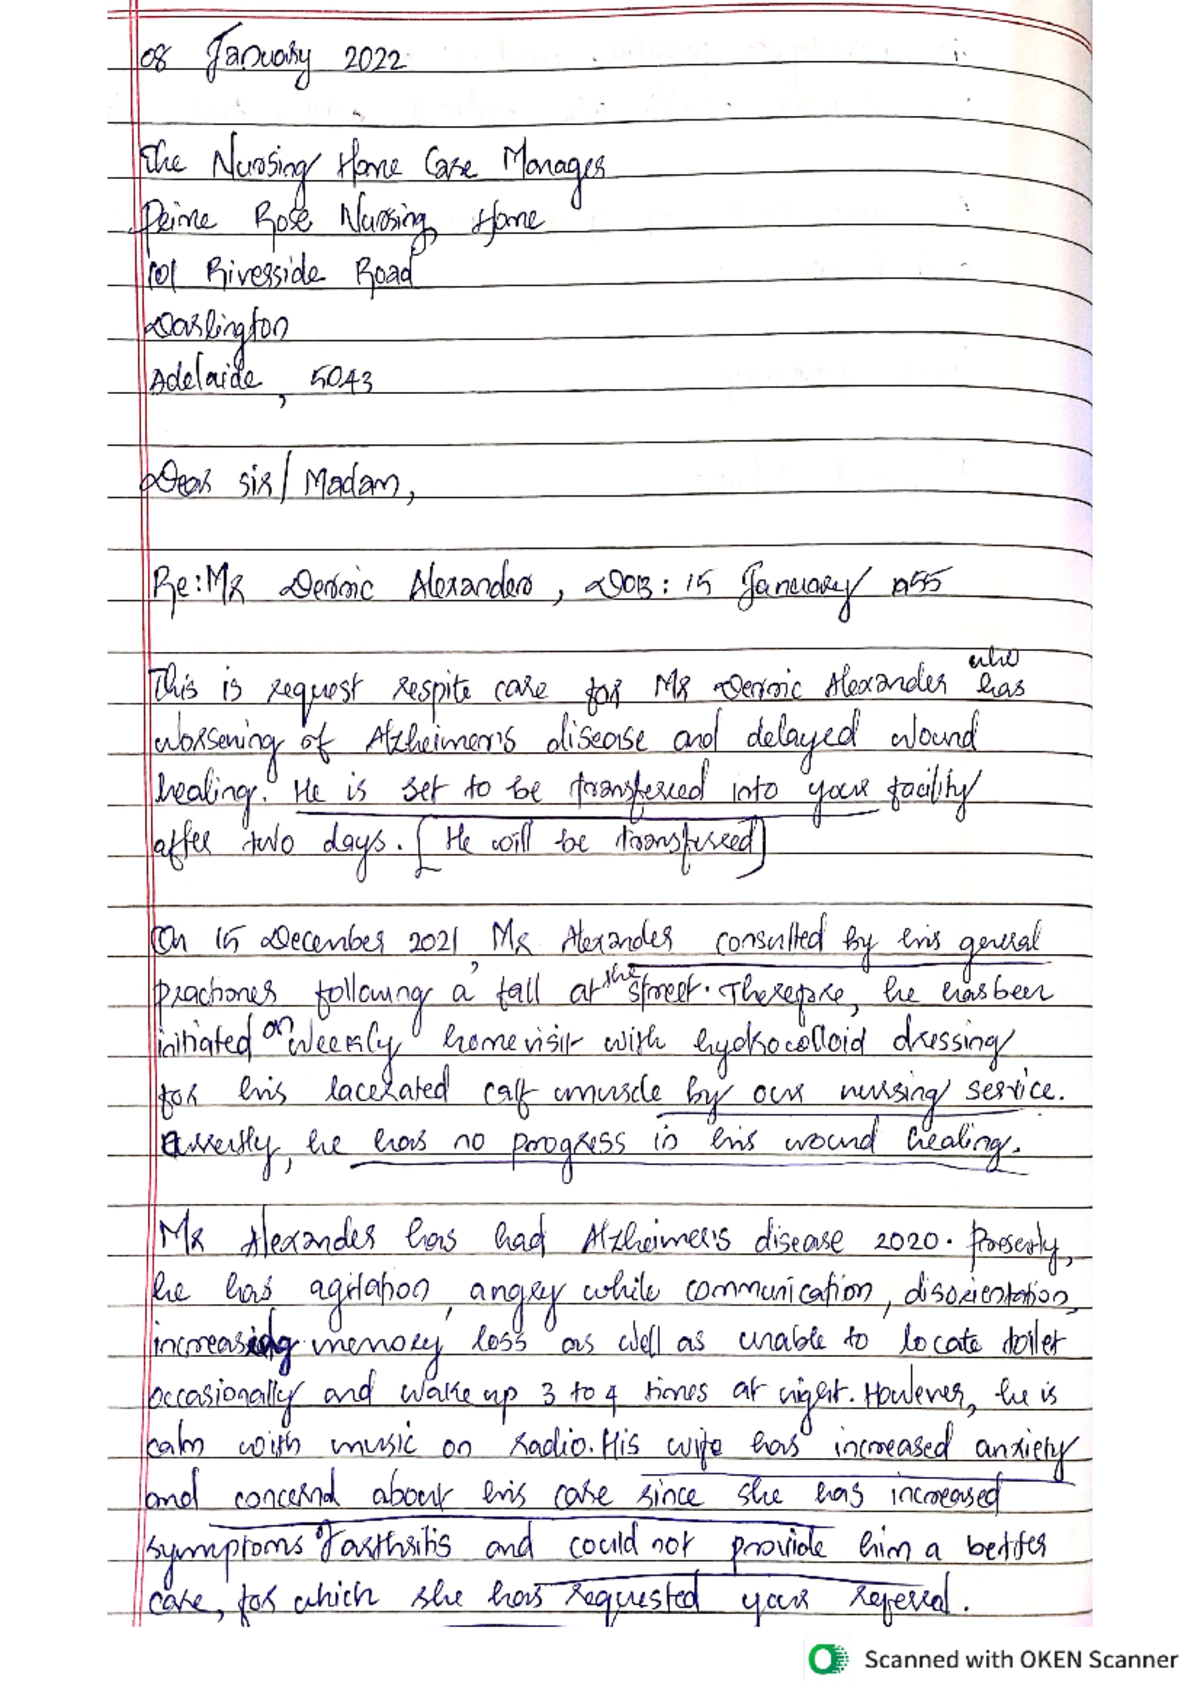 08 January 2022
The Nursing Home Care Manager
Prime Rose Nursing Home
101 Riverside Road
Darlington
Adelaide, 5043
Dear sir/Madam,
Re: Mr Derric Alexander, DOB: 15 January 1955
This is request respite care for Mr Derric Alexander who has
worsening of Alzheimer's disease and delayed wound
healing. He is set to be transferred into your facility
after two days. [He will be transfered]
On 15 December 2021, Mr Alexander consulted by his general
practioner following a fall at the street. Therefore, he has been
initiated on weekly home visit with hydrocolloid dressing
for his lacerated calf muscle by our nursing service.
Currently, he has no progress in his wound healing.
Mr Alexander has had Alzheimer's disease 2020. Presently,
he has agitation, angry while communication, disorientation,
increasing memory loss as well as unable to locate toilet
occasionally and wake up 3 to 4 times at night. However, he is
calm with music on radio. His wife has increased anxiety
and concernd about his care since she has increased
symptoms of arthritis and could not provide him a better
care, for which she has requested your referral.
Scanned with OKEN Scanner